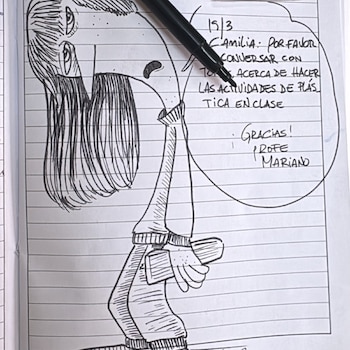 15/3
FAMILIA: POR FAVOR
CONVERSAR CON
ACERCA DE HACER
LAS ACTIVIDADES DE PLÁS-
TICA EN CLASE
¡GRACIAS!
PROFE
MARIANO